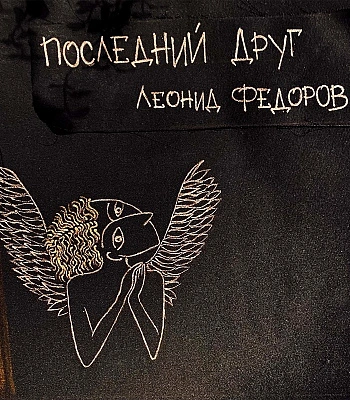 ПОСЛЕДНИЙ ДРУГ
ЛЕОНИД ФЕДОРОВ